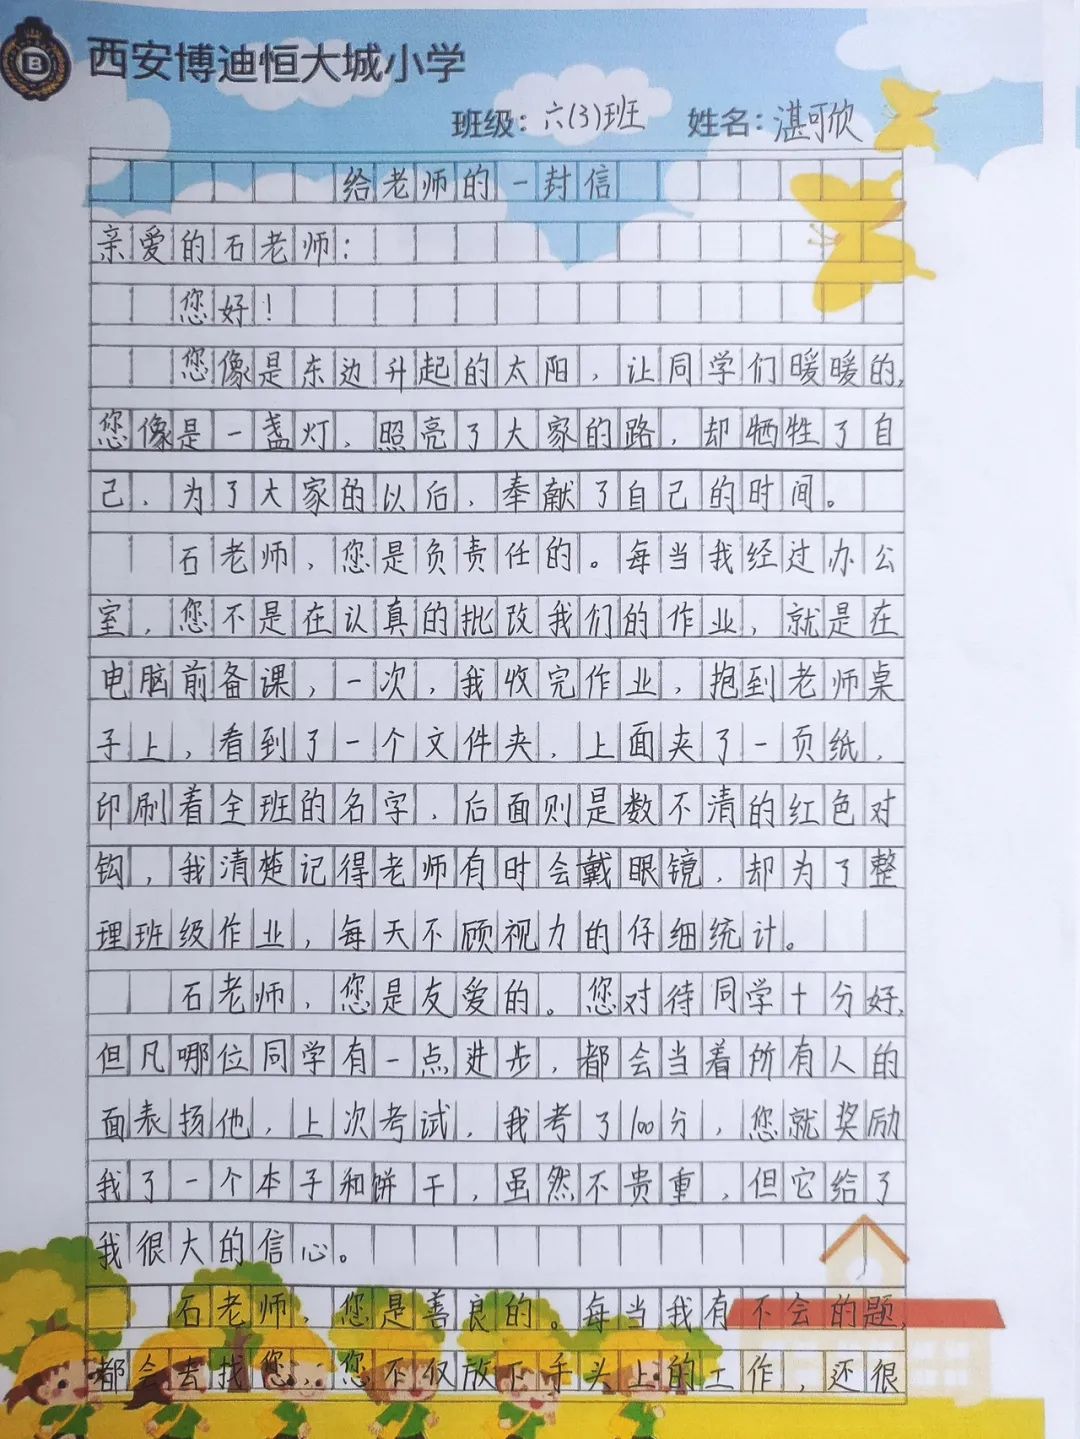 B
西安博迪恒大城小学
班级：六(3)班 姓名：湛可欣
给老师的一封信
亲爱的石老师：
您好！
您像是东边升起的太阳，让同学们暖暖的，
您像是一盏灯，照亮了大家的路，却牺牲了自
己，为了大家的以后，奉献了自己的时间。
石老师，您是负责任的。每当我经过办公
室，您不是在认真的批改我们的作业，就是在
电脑前备课，一次，我收完作业，抱到老师桌
子上，看到了一个文件夹，上面夹了一页纸，
印刷着全班的名字，后面则是数不清的红色对
钩，我清楚记得老师有时会戴眼镜，却为了整
理班级作业，每天不顾视力的仔细统计。
石老师，您是友爱的。您对待同学十分好，
但凡哪位同学有一点进步，都会当着所有人的
面表扬他，上次考试，我考了100分，您就奖励
我了一个本子和饼干，虽然不贵重，但它给了
我很大的信心。
石老师，您是善良的。每当我有不会的题，
都会去找您，您不仅放下手头上的工作，还很